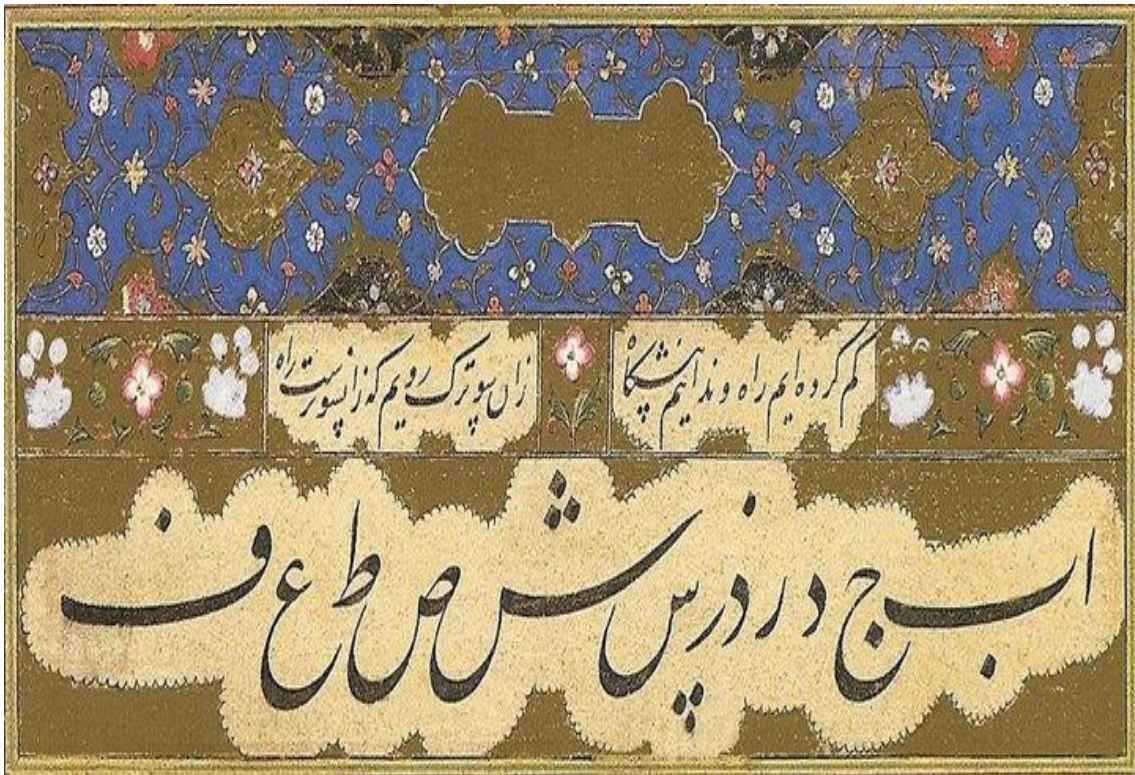 گم کرده ایم راه و ندانیم پیشگاه زان سوترک رویم که زانسوترست راه
ا ب ج د ر ذ ر س ش ص ط ع ف